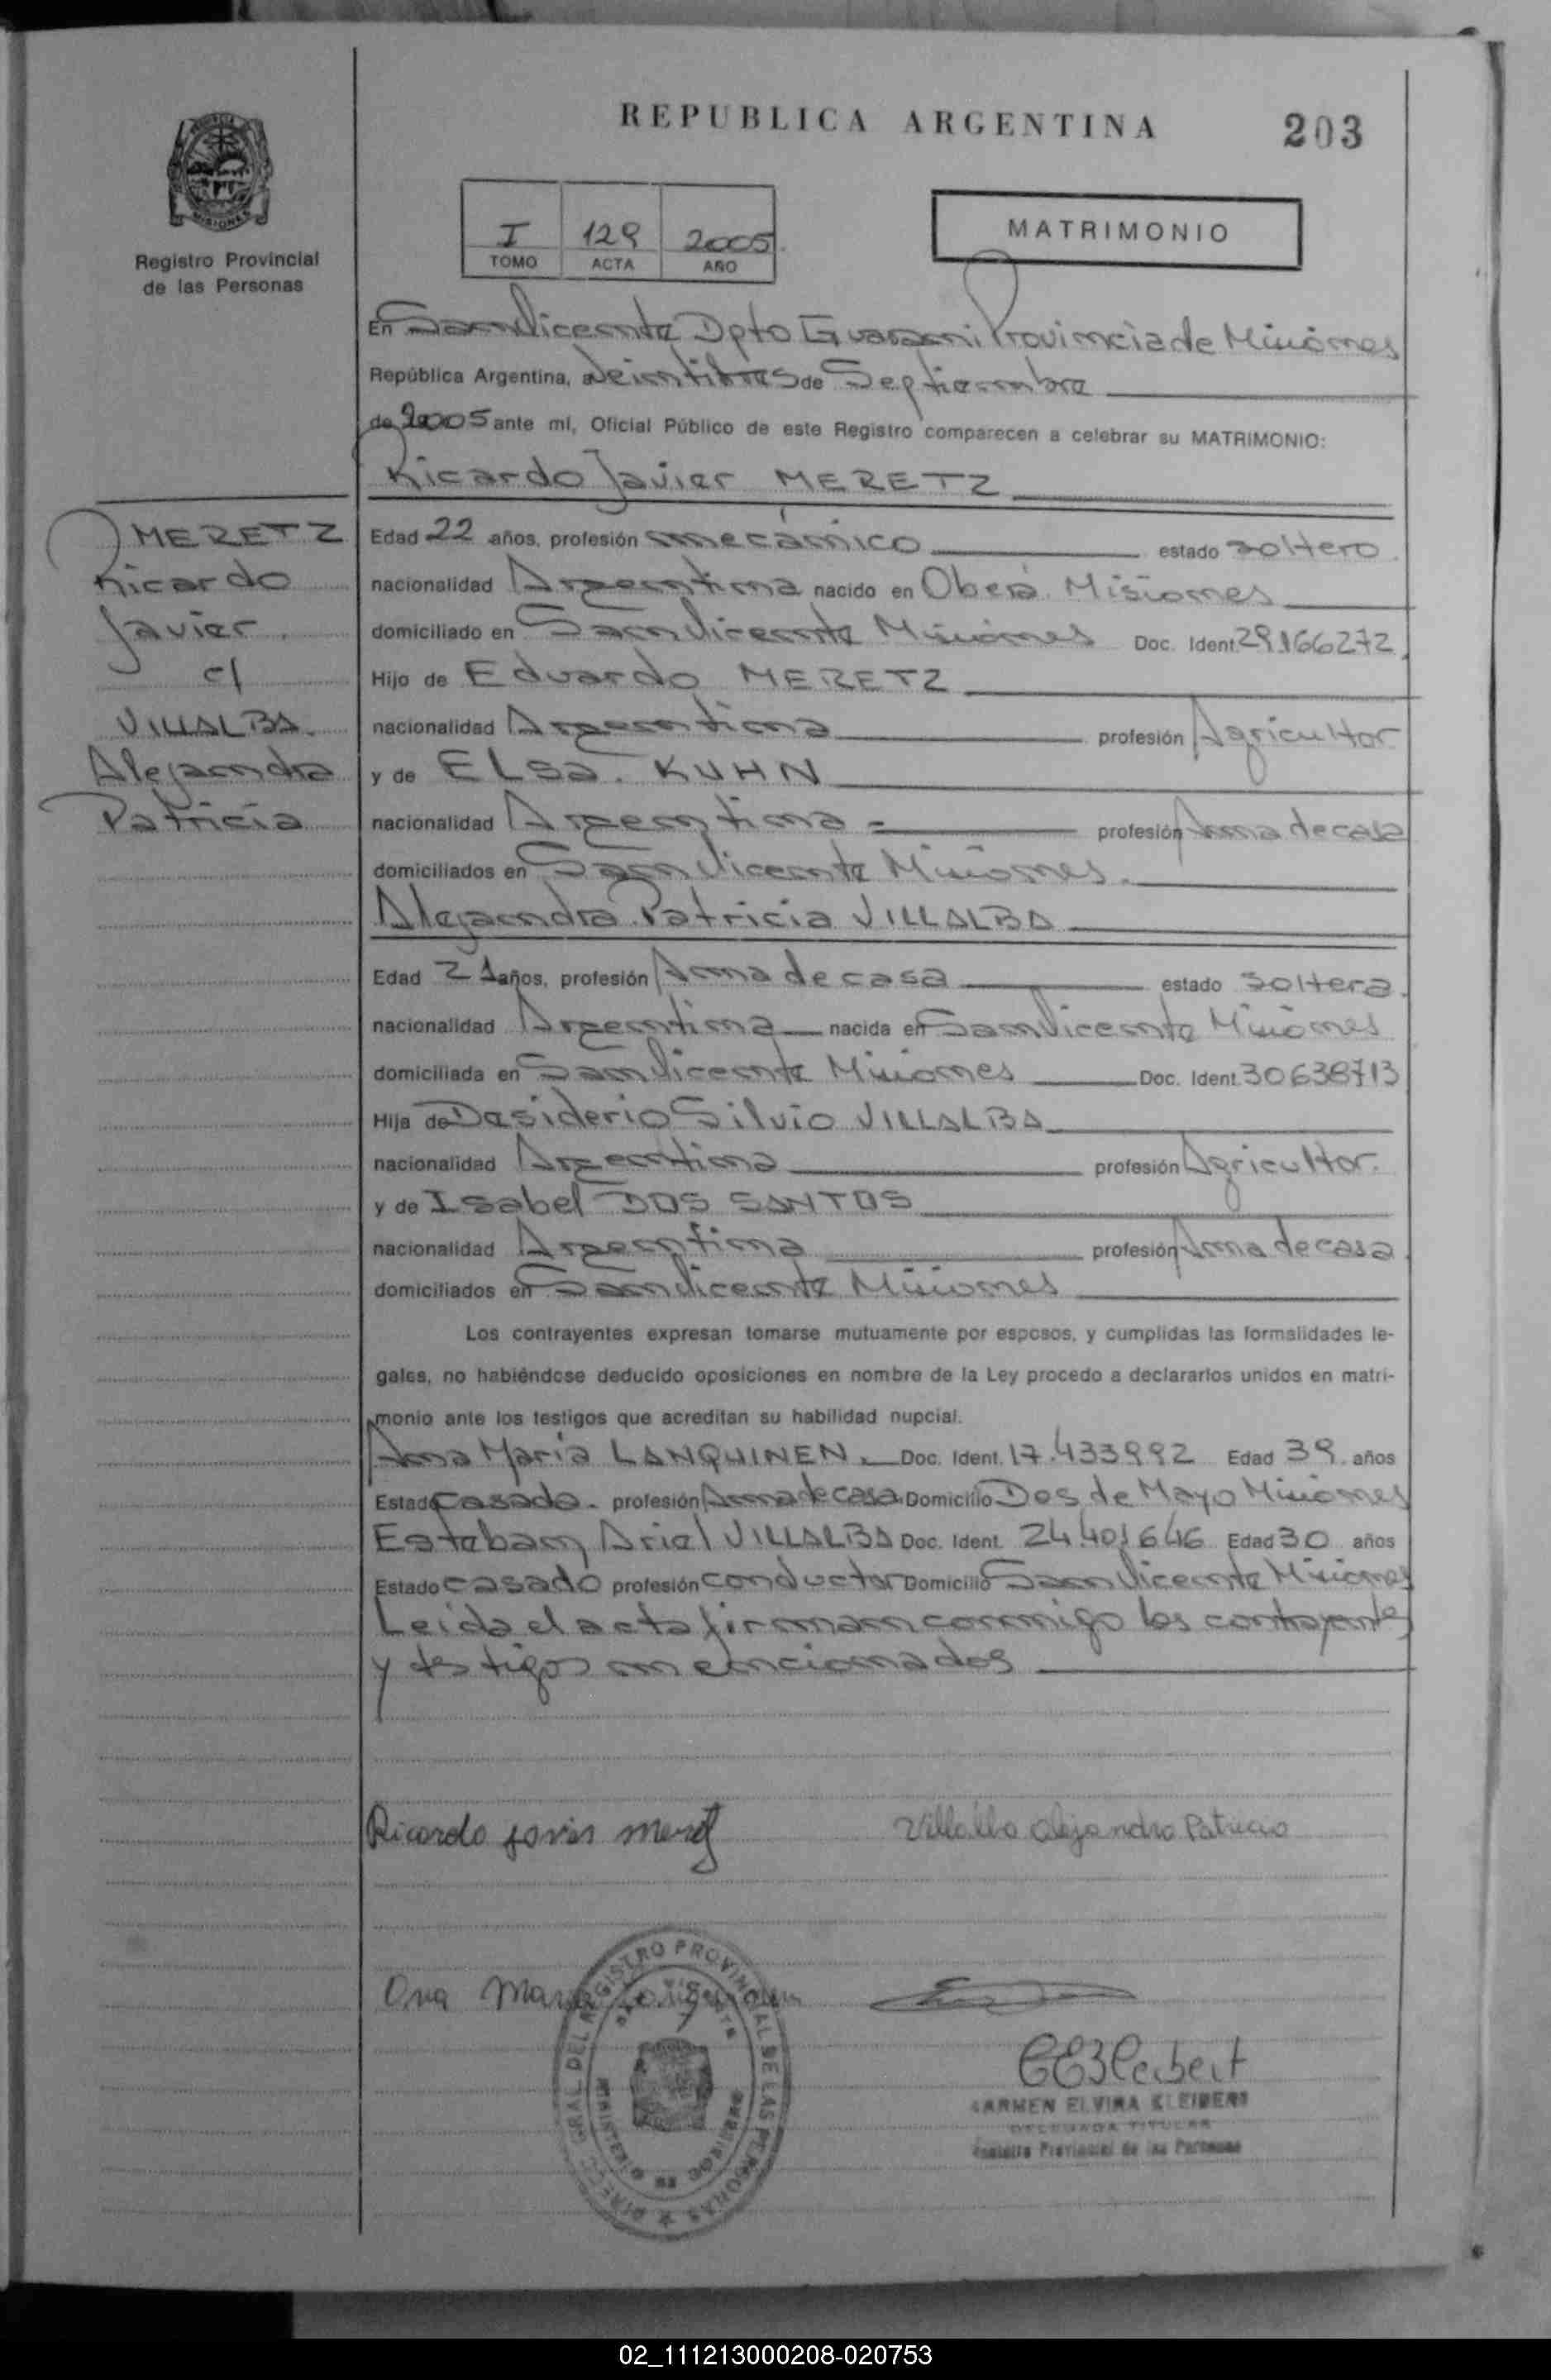 REPUBLICA ARGENTINA
203
MISIONES
Registro Provincial
de las Personas
I 129 2005
TOMO ACTA AÑO
MATRIMONIO
En San Vicente Dpto Guarani Provincia de Misiones
República Argentina, a Veintitres de Septiembre
de 2005 ante mí, Oficial Público de este Registro comparecen a celebrar su MATRIMONIO:
Ricardo Javier MERETZ
MERETZ
Ricardo
Javier
c/
VILLALBA.
Alejandra
Patricia
Edad 22 años, profesión mecánico estado soltero
nacionalidad Argentina nacido en Oberá Misiones
domiciliado en San Vicente Misiones Doc. Ident. 29.166272
Hijo de Eduardo MERETZ
nacionalidad Argentina profesión Agricultor
y de ELsa. KUHN
nacionalidad Argentina profesión Ama de casa
domiciliados en San Vicente Misiones.
Alejandra Patricia VILLALBA
Edad 21 años, profesión Ama de casa estado soltera.
nacionalidad Argentina nacida en San Vicente Misiones
domiciliada en San Vicente Misiones Doc. Ident. 30638713
Hija de Desiderio Silvio VILLALBA
nacionalidad Argentina profesión Agricultor.
y de Isabel DOS SANTOS
nacionalidad Argentina profesión Ama de casa
domiciliados en San Vicente Misiones
Los contrayentes expresan tomarse mutuamente por esposos, y cumplidas las formalidades le-
gales, no habiéndose deducido oposiciones en nombre de la Ley procedo a declararlos unidos en matri-
monio ante los testigos que acreditan su habilidad nupcial.
Ana María LANQUINEN. Doc. Ident. 17.433992 Edad 39 años
Estado casada profesión Ama de casa Domicilio Dos de Mayo Misiones
Esteban Ariel VILLALBA Doc. Ident. 24.401646 Edad 30 años
Estado casado profesión conductor Domicilio San Vicente Misiones
Leida el acta firman conmigo los contrayentes
y testigos mencionados
Ricardo Javier Meretz
Villalba Alejandra Patricia
Ana Maria
DIRECC. GRAL. DEL REGISTRO PROVINCIAL DE LAS PERSONAS
SAN VICENTE
MINISTERIO DE GOBIERNO
CARMEN ELVIRA KLEIBERT
DELEGADA TITULAR
Registro Provincial de las Personas
02_111213000208-020753